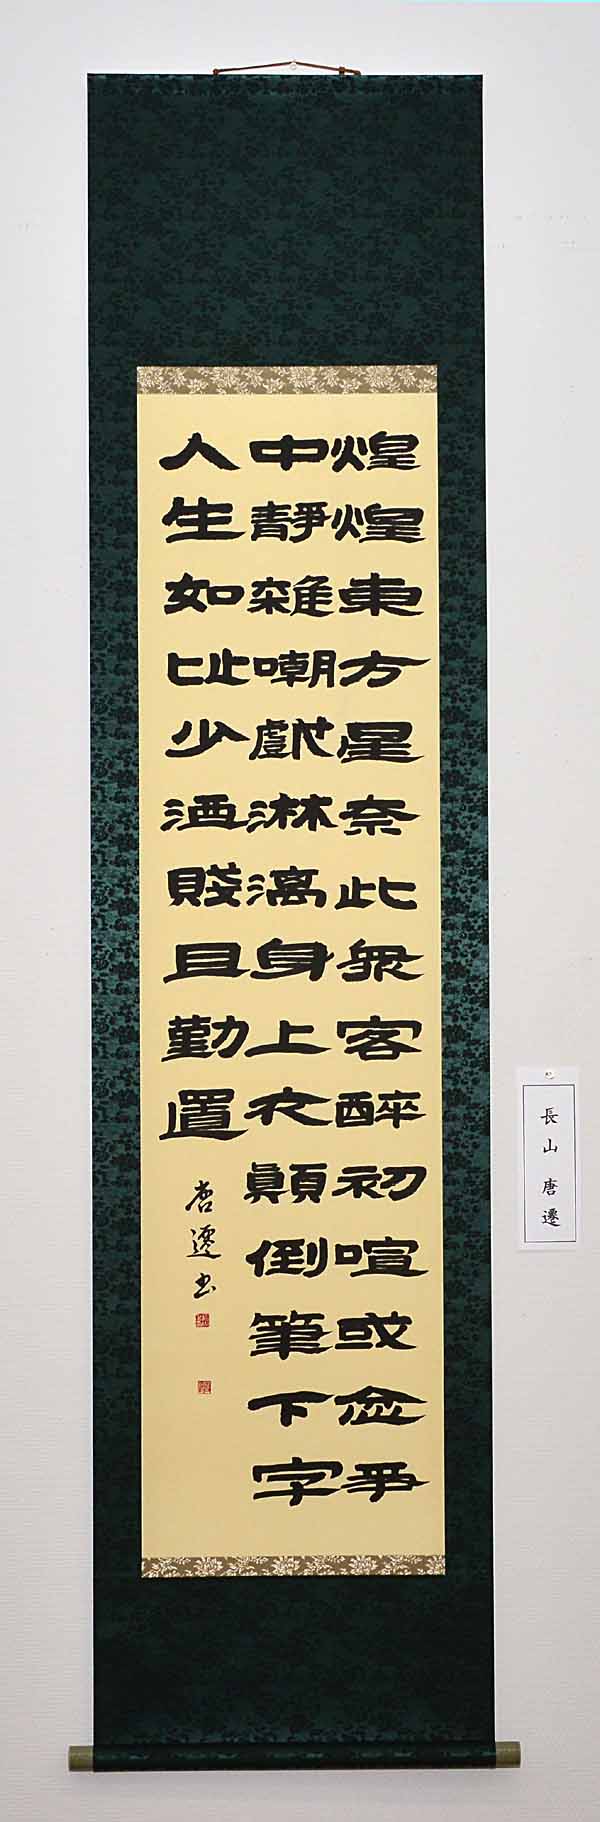 煌煌東方星奈此衆客醉初喧或忿爭
中靜雜嘲戲淋漓身上衣顛倒筆下字
人生如此少酒賤且勤置
唐遷书
長山 唐遷